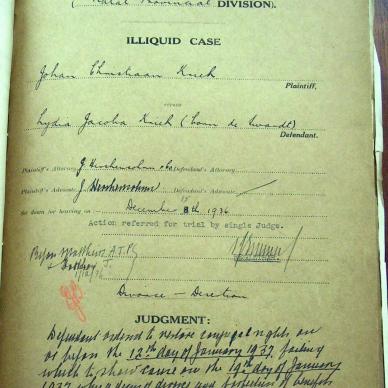 (Natal Provincial DIVISION).
ILLIQUID CASE
Johan Christiaan Kriek
Plaintiff,
versus
Lydia Jacoba Kriek (born de Swardt)
Defendant.
Plaintiff's Attorney J. Defendant's Attorney
Plaintiff's Advocate J. Defendant's Advocate
Set down for hearing on December 8th 1936
Action referred for trial by single Judge.
Before Matthews A.J.P.
J.
Divorce – Desertion
JUDGMENT:
Defendant ordered to restore conjugal rights on
or before the 12th day of January 1937, failing
which to show cause on the 19th day of January
1937 why a decree of divorce and forfeiture of benefits